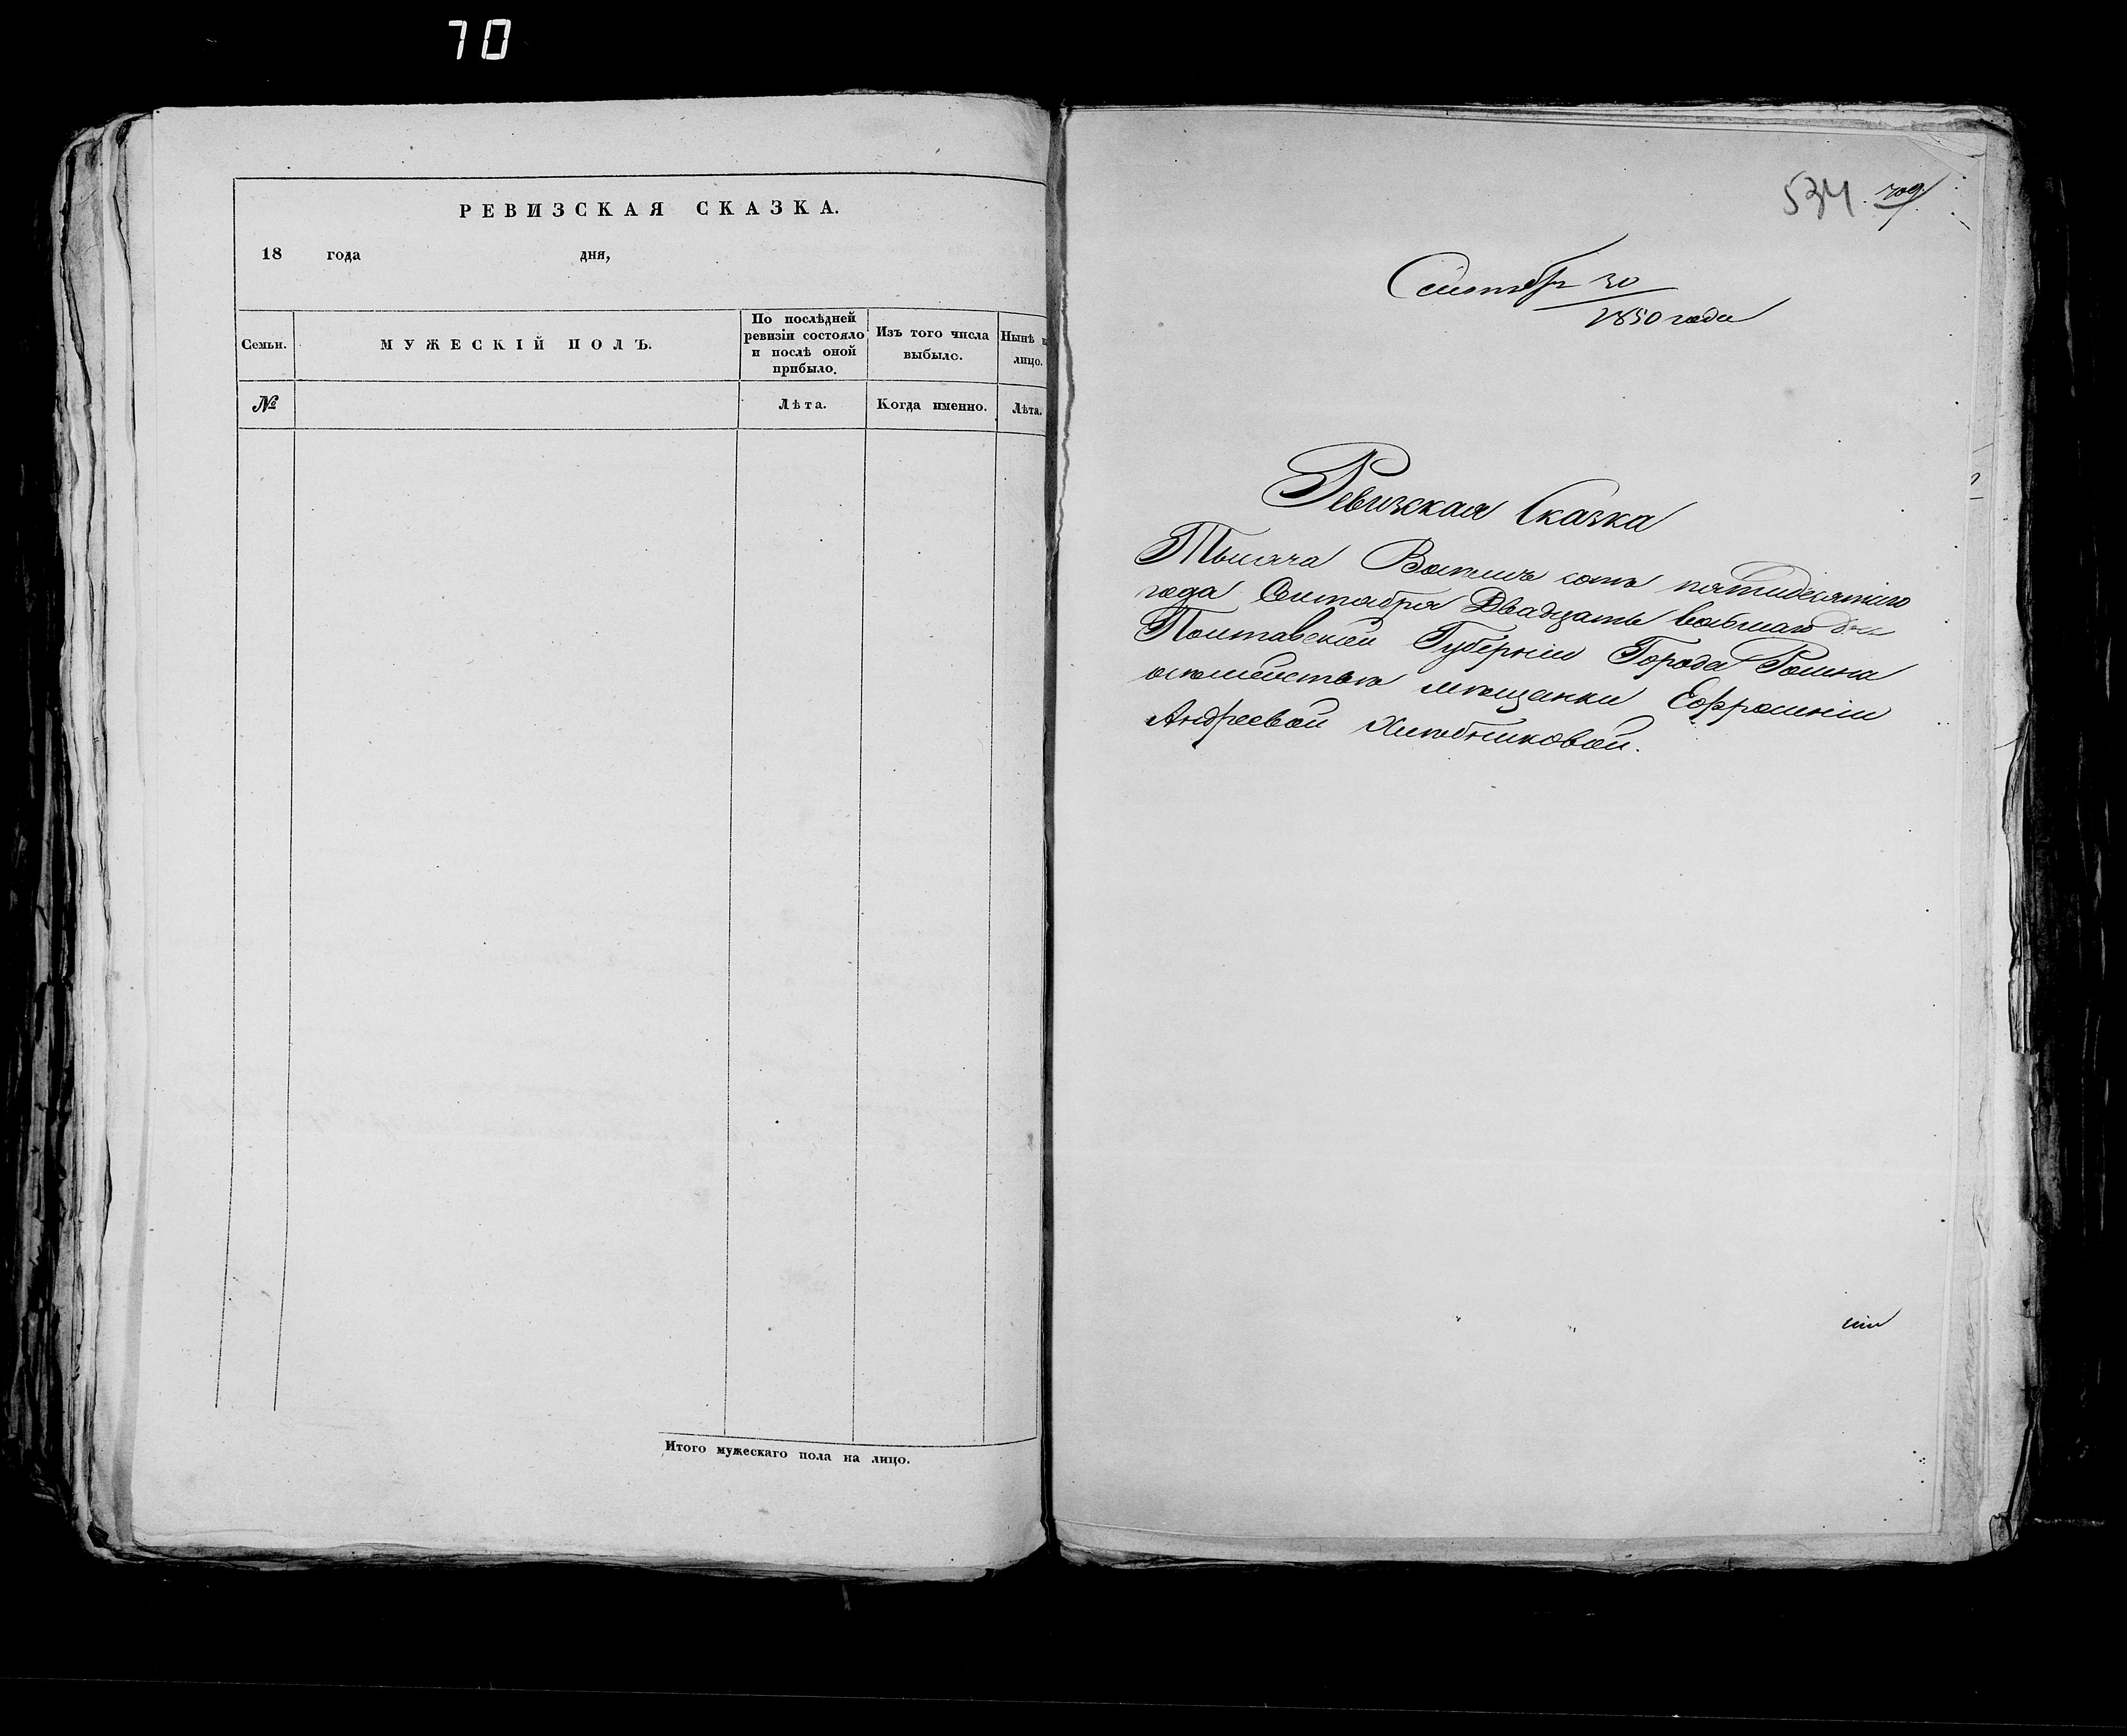 70
РЕВИЗСКАЯ СКАЗКА.
18 года дня,
Семьи.
МУЖЕСКІЙ ПОЛЪ.
По послѣдней ревизіи состояло и послѣ оной прибыло.
Изъ того числа выбыло.
Нынѣ н лицо.
№
Лѣта.
Когда именно.
Лѣта.
Итого мужескаго пола на лицо.
534. 709
Сентябр 30
1850 года
Ревизская Сказка
Тысяча Восемь сотъ пятидесятаго
года Сентября Двадцать
Полтавской Губерніи Города Ромна
о семействѣ мѣщанки Ефросиніи
Андреевой Хлѣбниковой.